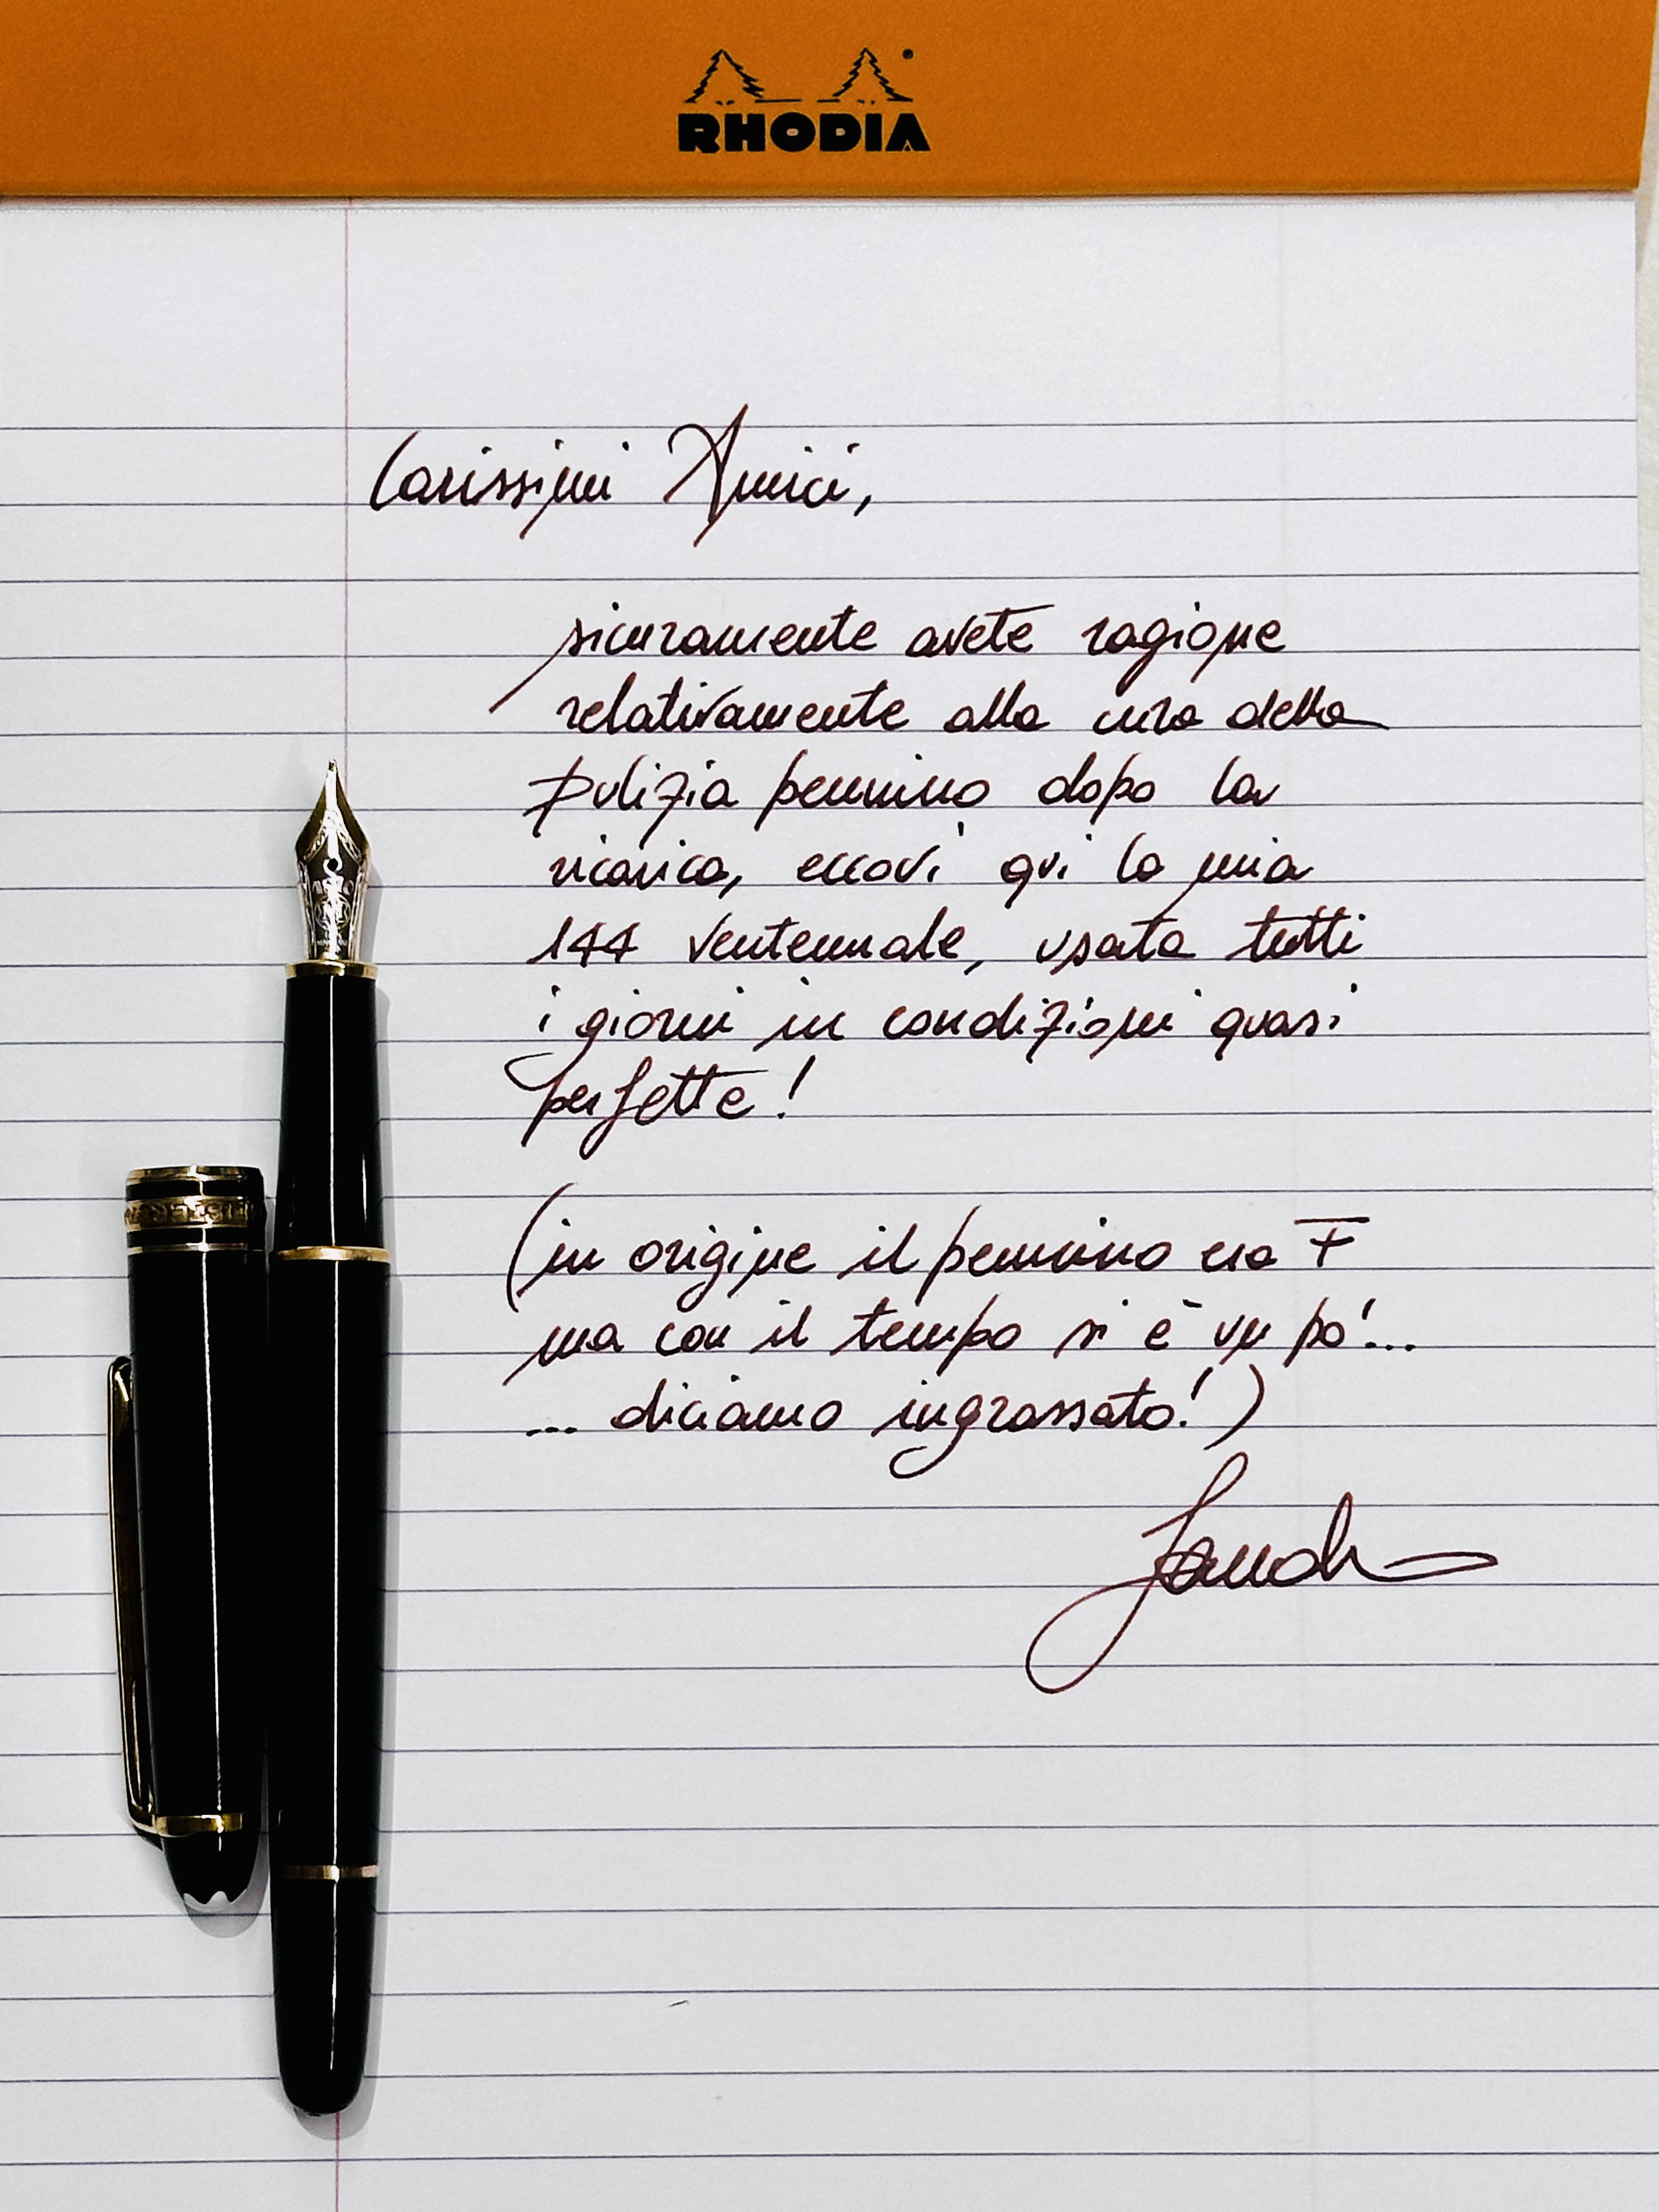 RHODIA
Carissimi Amici,
sicuramente avete ragione
relativamente alla cura della
pulizia pennino dopo la
ricarica, eccovi qui la mia
144 ventennale, usata tutti
i giorni in condizioni quasi
perfette!
(in origine il pennino era F
ma con il tempo si è un po'...
... diciamo ingrassato!)